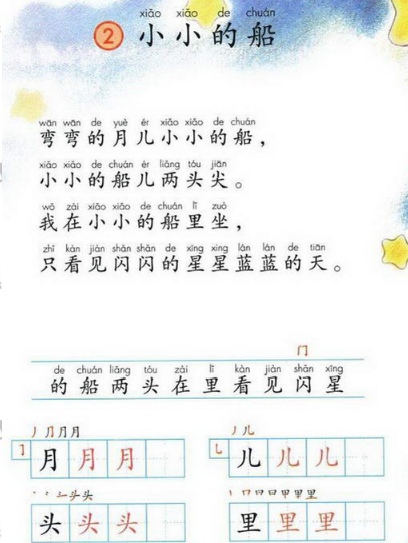 xiǎo xiǎo de chuán
2 小小的船
wān wān de yuè ér xiǎo xiǎo de chuán
弯弯的月儿小小的船，
xiǎo xiǎo de chuán ér liǎng tóu jiān
小小的船儿两头尖。
wǒ zài xiǎo xiǎo de chuán lǐ zuò
我在小小的船里坐，
zhǐ kàn jiàn shǎn shǎn de xīng xing lán lán de tiān
只看见闪闪的星星蓝蓝的天。
门
de chuán liǎng tóu zài lǐ kàn jiàn shǎn xīng
的船两头在里看见闪星
丿 ⺆ 月 月
丿 儿
月 月 月
儿 儿 儿
头 头
里
头 头 头
里 里 里